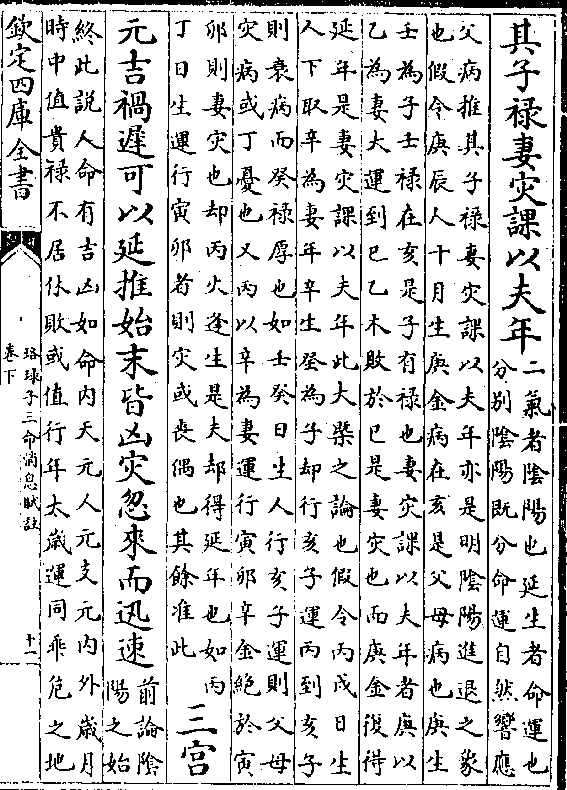 其子禄妻灾課以夫年
二氣者陰陽也延生者命運也
分别陰陽既分命運自然響應
父病推其子禄妻灾課以夫年亦是明陰陽進退之象
也假令庚辰人十月生庚金病在亥是父母病也庚生
壬為子壬禄在亥是子有禄也妻灾課以夫年者庚以
乙為妻大運到巳乙木敗於巳是妻灾也而庚金復得
延年是妻灾課以夫年此大槩之論也假令丙戌日生
人下取辛為妻年辛生癸為子却行亥子運丙到亥子
則衰病而癸禄厚也如壬癸日生人行亥子運則父母
灾病或丁憂也又丙以辛為妻運行寅卯辛金絶於寅
卯則妻灾也却丙火逢生是夫却得延年也如丙
丁日生運行寅卯者則灾或喪偶也其餘准此
三宫
元吉禍遲可以延推始末皆凶灾忽來而迅速
前論陰
陽之始
終此説人命有吉凶如命内天元人元支元内外歳月
時中值貴禄不居休敗或值行年太歳運同乖危之地
欽定四庫全書
珞琭子三命消息賦註
卷下
十一